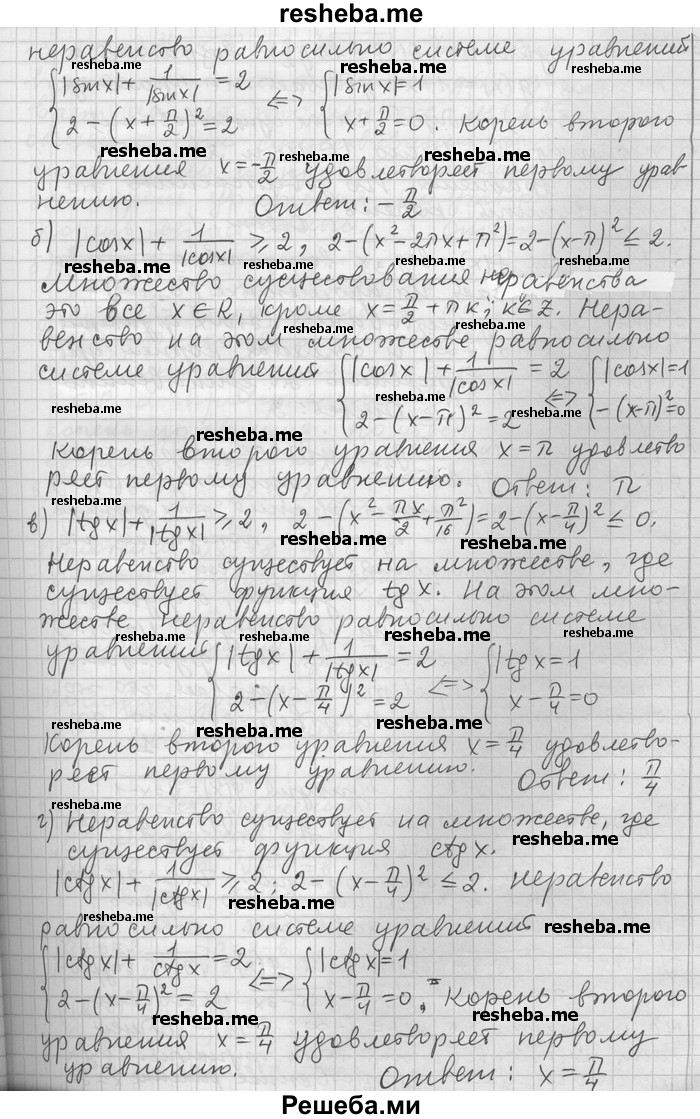 resheba.me
неравенство равносильно системе уравнений
{ |sinx| + 1/|sinx| = 2 <=> { |sinx|=1
{ 2-(x+π/2)²=2 { x+π/2=0. Корень второго
уравнения x=-π/2 удовлетворяет первому урав-
нению. Ответ: -π/2
б) |cosx| + 1/|cosx| ⩾ 2, 2-(x²-2πx+π²)=2-(x-π)² ≤ 2.
Множество существования неравенства
это все x∈R, кроме x=π/2+πк; к∈Z. Нера-
венство на этом множестве равносильно
системе уравнений { |cosx| + 1/|cosx| = 2 <=> { |cosx|=1
{ 2-(x-π)²=2 { -(x-π)²=0
Корень второго уравнения x=π удовлетво
ряет первому уравнению. Ответ: π
в) |tgx| + 1/|tgx| ⩾ 2, 2-(x²-πx/2+π²/16)=2-(x-π/4)² ≤ 0.
Неравенство существует на множестве, где
существует функция tgx. На этом мно-
жестве неравенство равносильно системе
уравнений { |tgx| + 1/|tgx| = 2 <=> { |tgx=1
{ 2-(x-π/4)²=2 { x-π/4=0
Корень второго уравнения x=π/4 удовлетво-
ряет первому уравнению. Ответ: π/4
г) Неравенство существует на множестве, где
существует функция ctgx.
|ctgx| + 1/|ctgx| ⩾ 2; 2-(x-π/4)² ≤ 2. Неравенство
равносильно системе уравнений
{ |ctgx| + 1/ctgx = 2 <=> { |ctgx|=1
{ 2-(x-π/4)²=2 { x-π/4=0, Корень второго
уравнения x=π/4 удовлетворяет первому
уравнению. Ответ: x=π/4
Решеба.ми